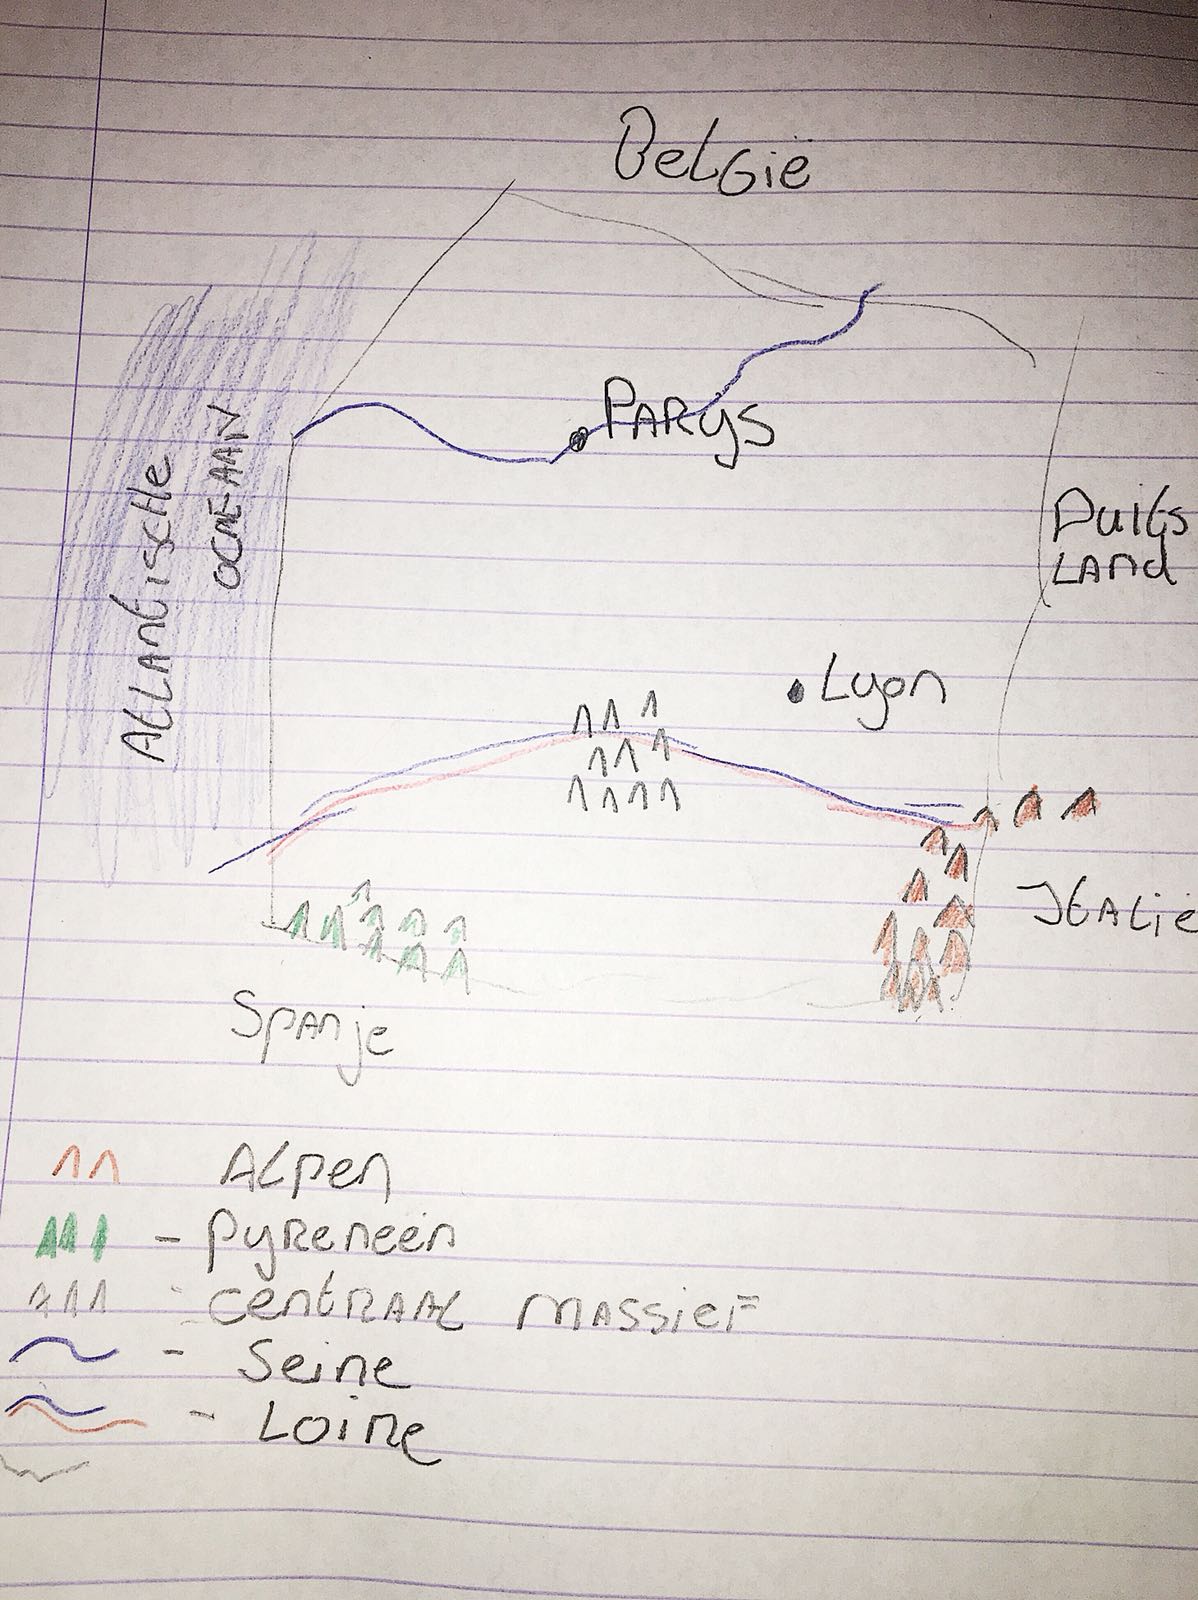 België
PARyS
AtLANtiscHe
OCAE-AAN
Duits
LAnd
Lyon
ItALië
SpAnje
ALpen
- pyReneeën
- centRAAL mASSieF
- Seine
- LoiRe